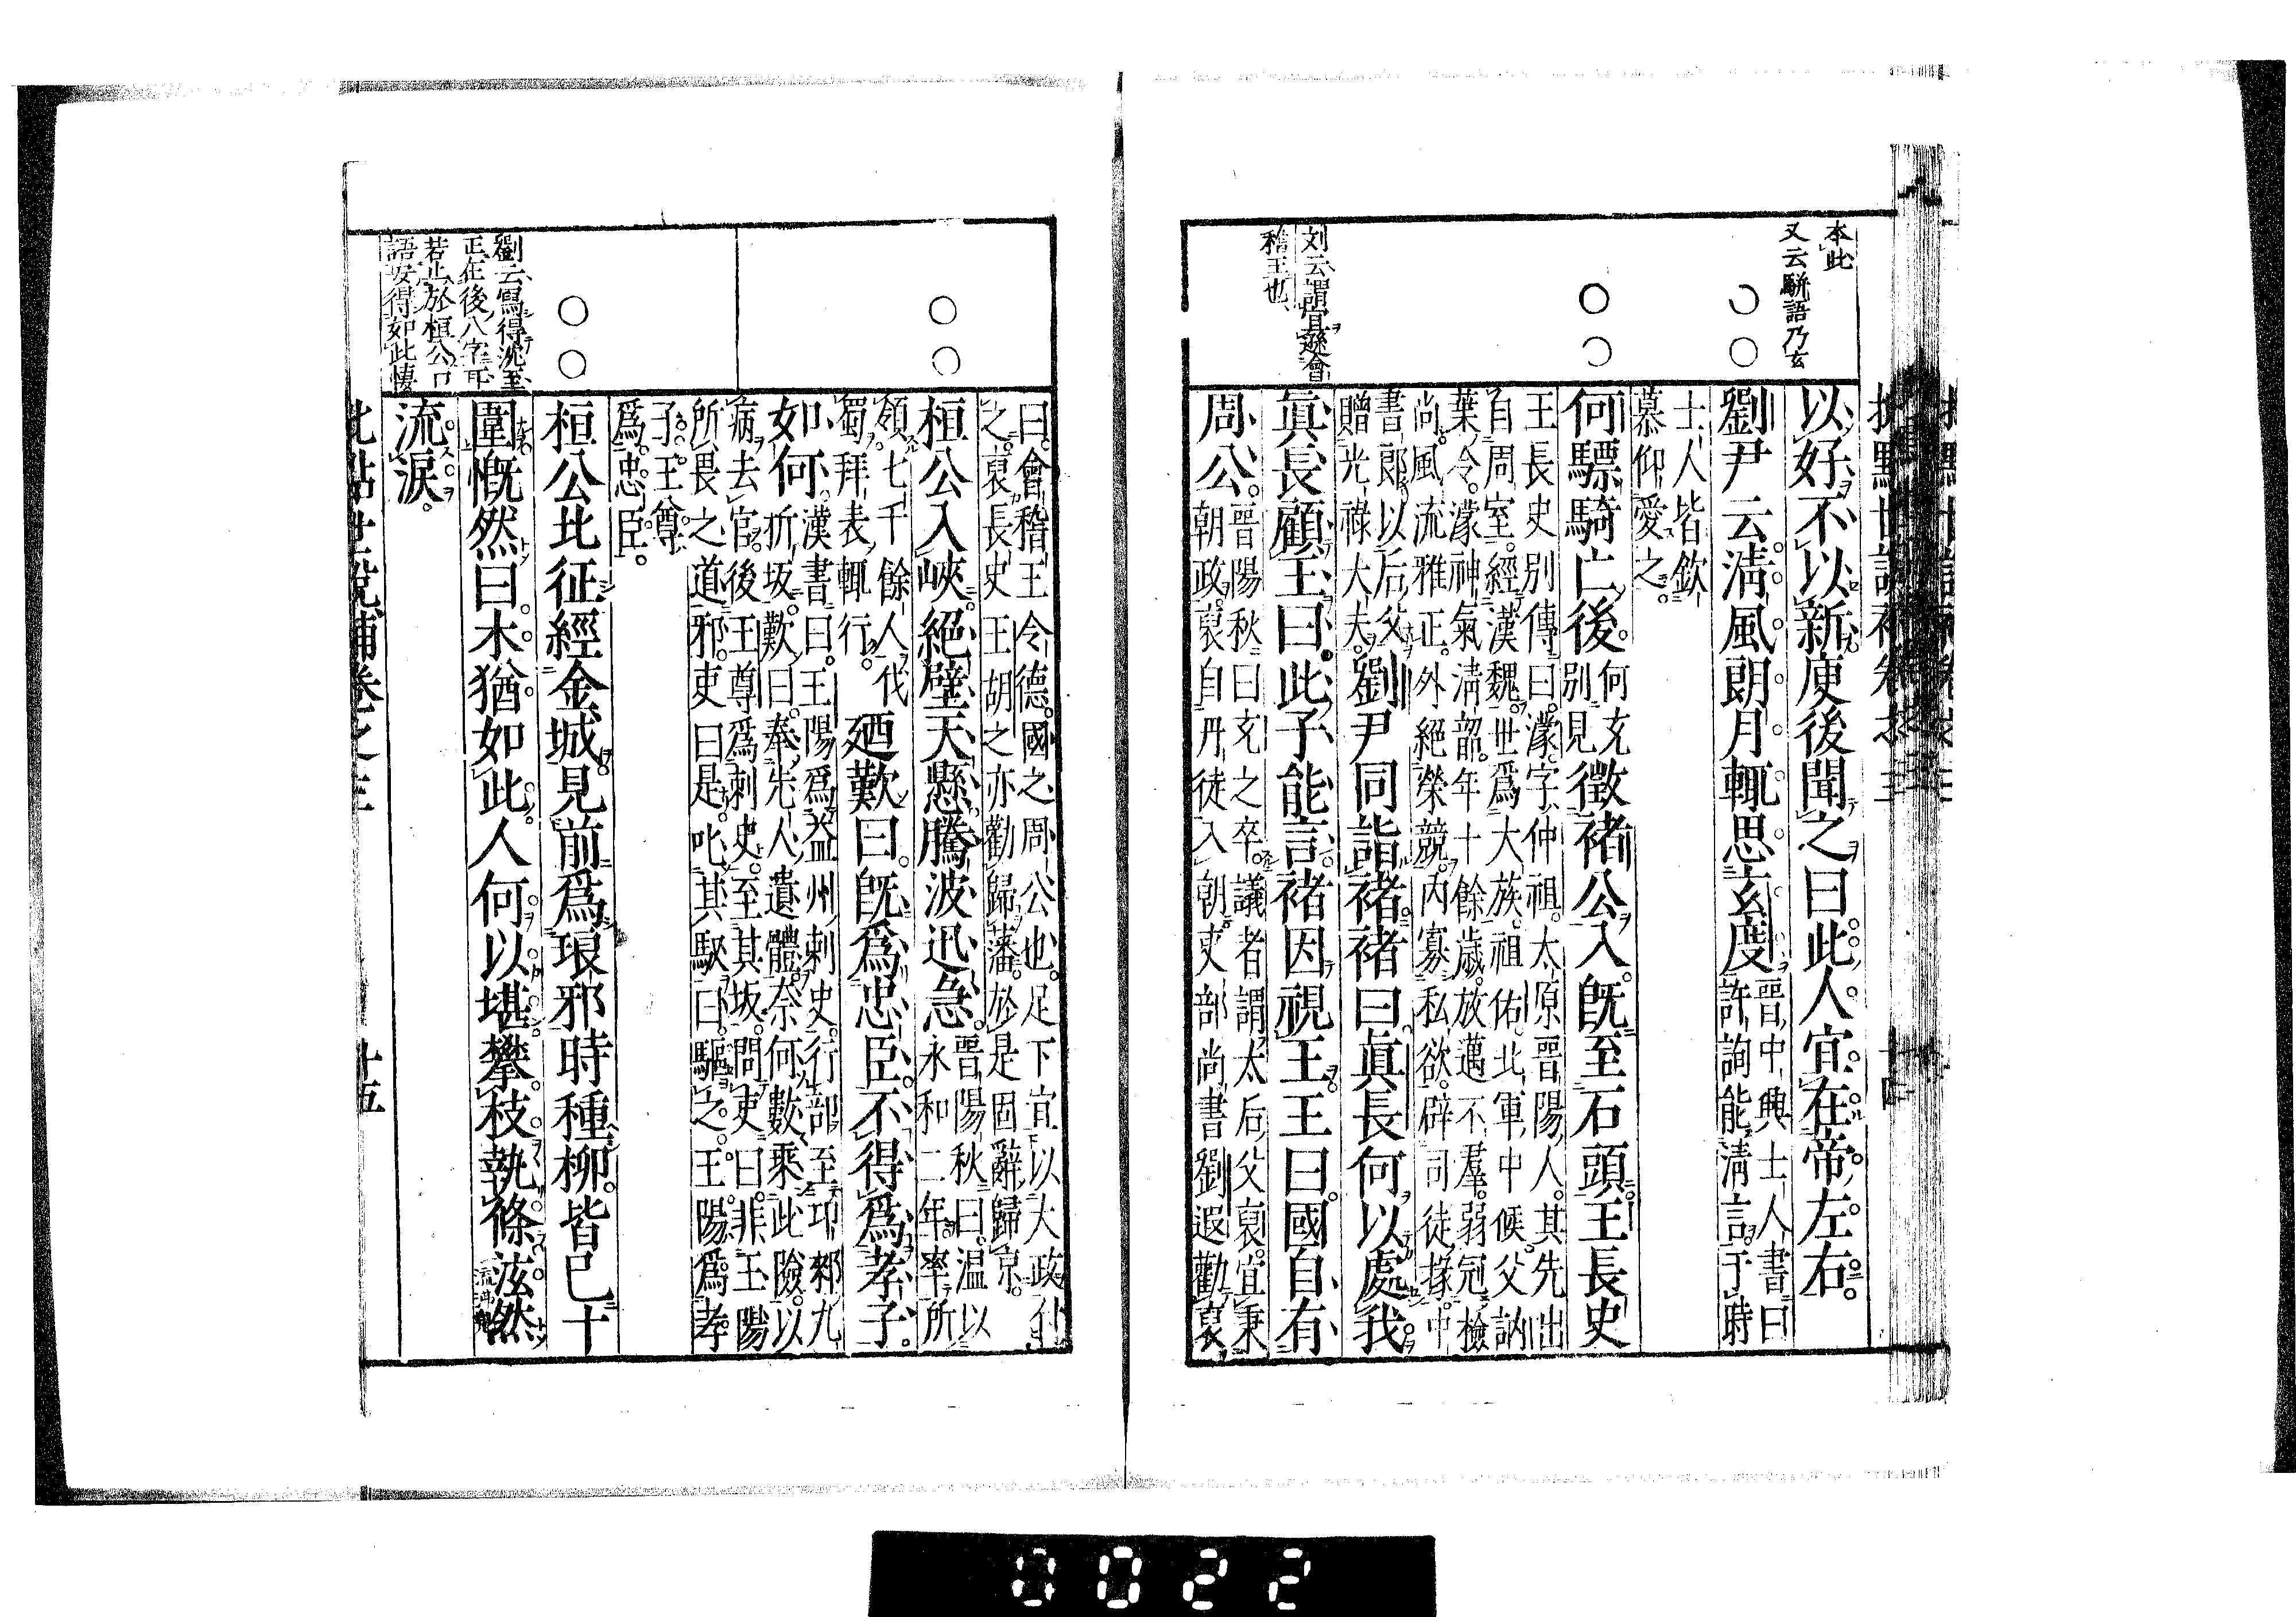 本此
又云駢語乃玄
以好不以新庾後聞之曰此人宜在帝左右
劉尹云淸風朗月輒思玄度
晉中興士人書曰
許詢能淸言于時
士人皆欽
慕仰愛之
何驃騎亡後
何充
別見
徵褚公入旣至石頭王長史
王長史別傳曰濛字仲祖太原晉陽人其先出
自周室經漢魏世爲大族祖佑北軍中候父訥
葉令濛神氣淸韶年十餘歲放邁不羣弱冠檢
尚風流雅正外絕榮競內寡私欲辟司徒掾中
書郎以后父
贈光祿大夫
劉尹同詣褚褚曰眞長何以處我
刘云謂宜遜會
稽王也
眞長顧王曰此子能言褚因視王王曰國自有
周公
晉陽秋曰充之卒議者謂太后父裒宜秉
朝政裒自丹徒入朝吏部尚書劉遐勸裒
曰會稽王令德國之周公也足下宜以大政付
之裒長史王胡之亦勸歸藩於是固辭歸京
桓公入峽絕壁天懸騰波迅急
晉陽秋曰溫以
永和二年率所
領七千餘人伐
蜀拜表輒行
廼歎曰旣爲忠臣不得爲孝子
如何
漢書曰王陽爲益州刺史行部至邛郲九
折坂歎曰奉先人遺體奈何數乘此險以
病去官後王尊爲刺史至其坂問吏曰非王陽
所畏之道邪吏曰是叱其馭曰驅之王陽爲孝
子王尊
爲忠臣
桓公北征經金城見前爲琅邪時種柳皆已十
圍慨然曰木猶如此人何以堪攀枝執條泫然
劉云寫得沈至
正在後八字耳
若止於桓公口
語安得如此悽
流淚
批點世說補卷之三
十五